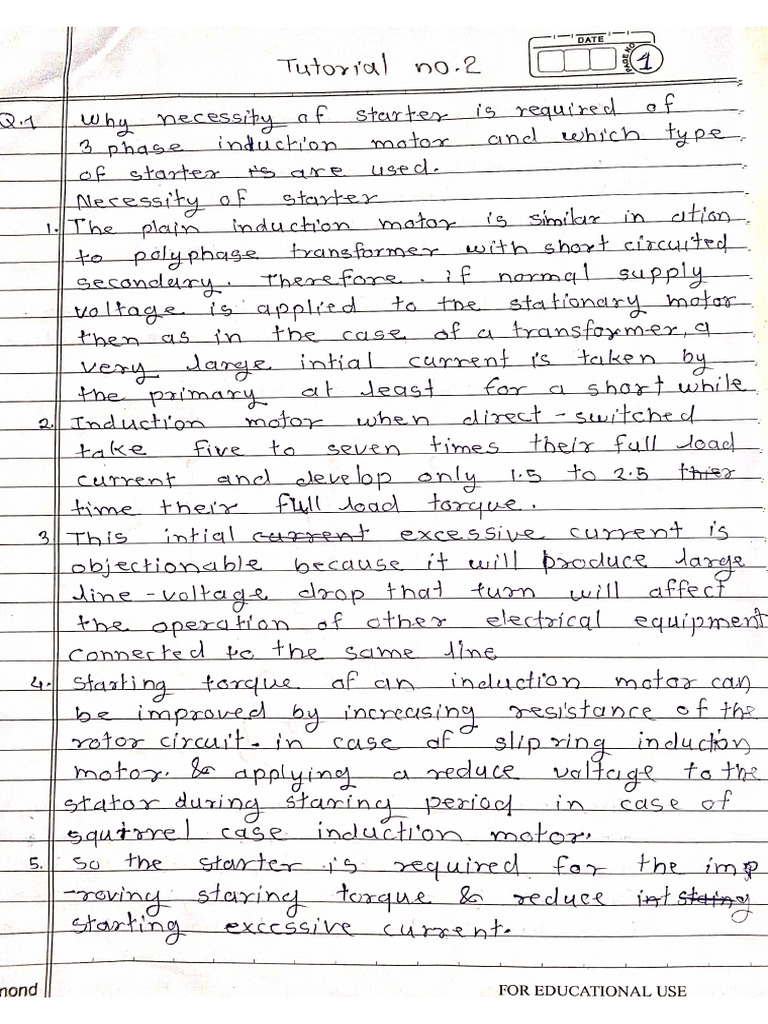 DATE
Tutorial no.2
PAGE NO
1
Q.1 Why necessity of starter is required of
3 phase induction motor and which type
of starter is are used.
Necessity of starter
1. The plain induction motor is similar in ction
to polyphase transformer with short circuited
secondary. Therefore. if normal supply
voltage is applied to the stationary motor
then as in the case of a transformer, a
very large intial current is taken by
the primary at least for a short while
2. Induction motor when direct - switched
take five to seven times their full load
current and develop only 1.5 to 2.5 thier
time their full load torque.
3 This intial current excessive current is
objectionable because it will produce large
line - voltage drop that turn will affect
the operation of other electrical equipment
connected to the same line
4. Starting torque of an induction motor can
be improved by increasing resistance of the
rotor circuit. in case of slip ring induction
motor. & applying a reduce voltage to the
stator during staring period in case of
squirrel case induction motor.
5. So the starter is required for the imp
-roving staring torque & reduce int staing
starting excessive current.
mond
FOR EDUCATIONAL USE